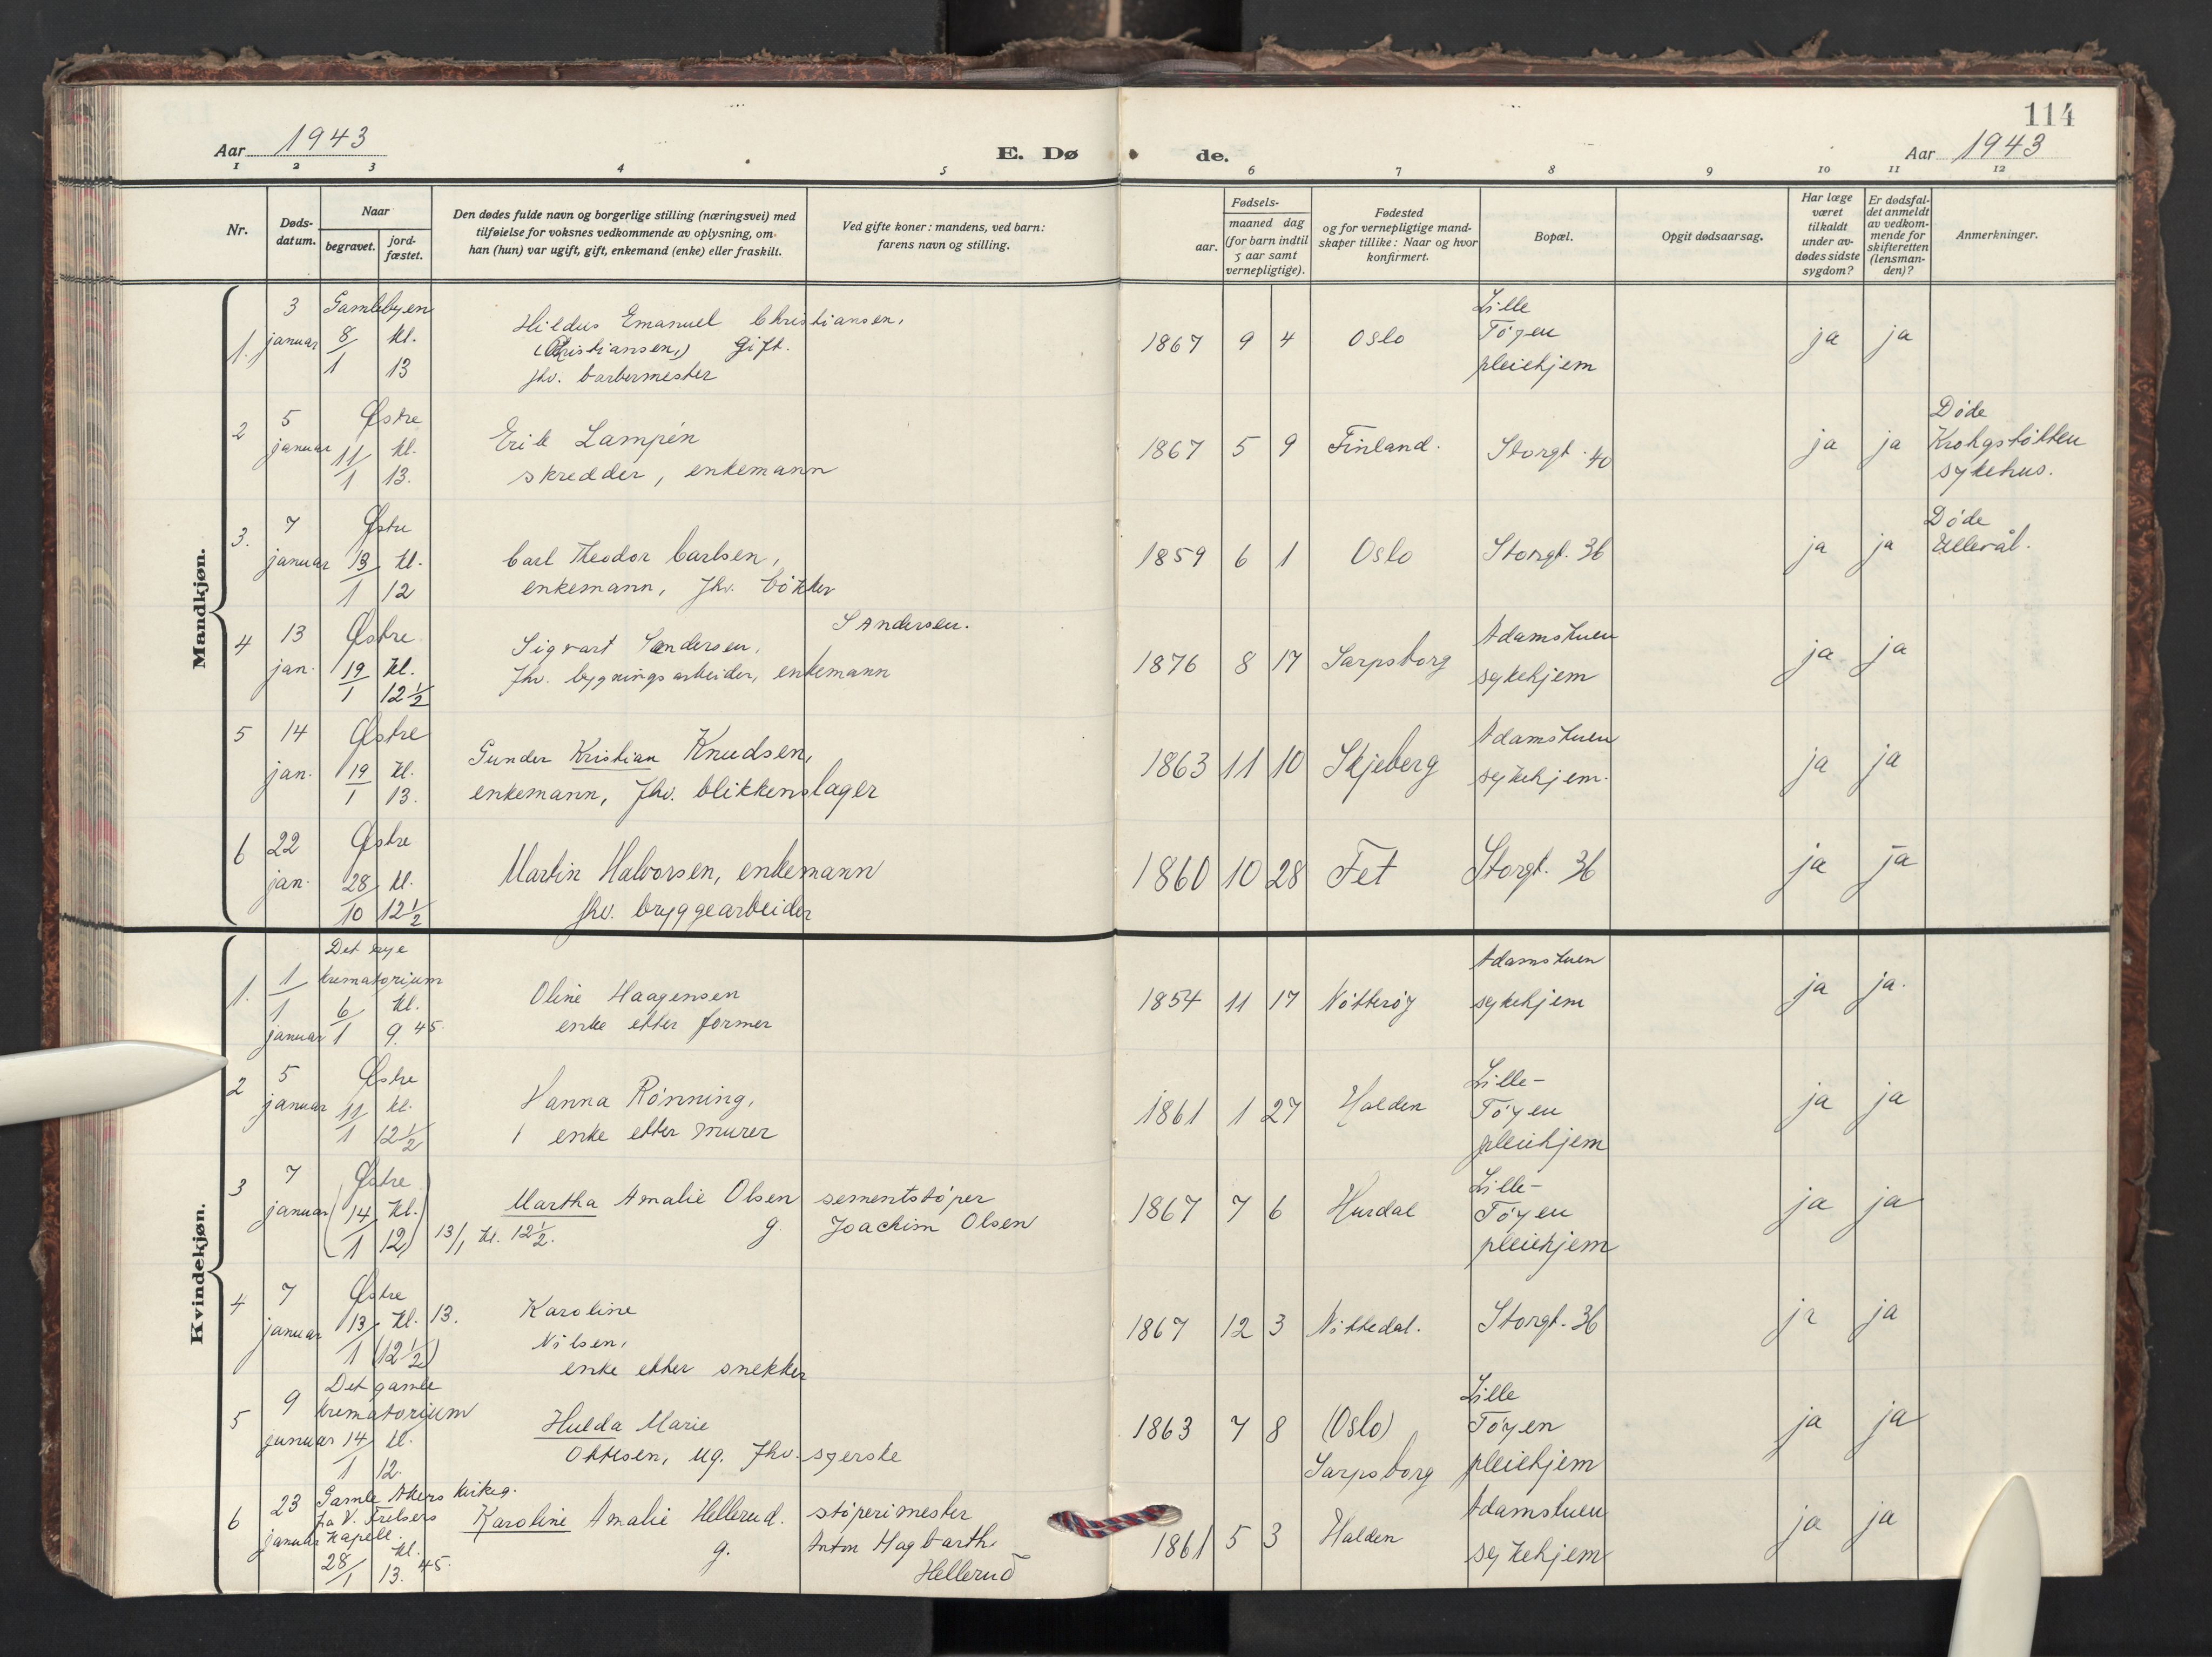 114
Aar 1943
E. Dø
de.
Aar 1943
1 2 3 4 5 6 7 8 9 10 11 12
Nr.
Døds-
datum.
Naar
begravet.
jord-
fæstet.
Den dødes fulde navn og borgerlige stilling (næringsvei) med
tilføielse for voksnes vedkommende av oplysning, om
han (hun) var ugift, gift, enkemand (enke) eller fraskilt.
Ved gifte koner: mandens, ved barn:
farens navn og stilling.
Fødsels-
aar.
maaned dag
(for barn indtil
5 aar samt
vernepligtige).
Fødested
og for vernepligtige mand-
skaper tillike: Naar og hvor
konfirmert.
Bopæl.
Opgit dødsaarsag.
Har læge
været
tilkaldt
under av-
dødes sidste
sygdom?
Er dødsfal-
det anmeldt
av vedkom-
mende for
skifteretten
(lensman-
den)?
Anmerkninger.
Mandkjøn.
1.
3
januar
Gamlebyen
8/1
kl.
13
Hildus Emanuel Christiansen,
(Kristiansen,) gift.
fhv. barbermester
1867 9 4 Oslo
Lille
Tøyen
pleiehjem
ja ja
2
5
januar
Østre
11/1
kl.
13.
Erik Lampén
skredder, enkemann
1867 5 9 Finland. Storgt. 40
ja ja
Døde
Krohgstøtten
sykehus.
3.
7
januar
Østre
13/1
kl.
12
Carl Theodor Carlsen,
enkemann, fhv. bøkker
1859 6 1 Oslo Storgt. 36
ja ja
Døde
Ullevål.
4
13
jan.
Østre
19/1
kl.
12 1/2
Sigvart Sandersen,
S Andersen.
fhv. bygningsarbeider, enkemann
1876 8 17 Sarpsborg
Adamstuen
sykehjem
ja ja
5
14
jan.
Østre
19/1
kl.
13.
Gunder Kristian Knudsen,
enkemann, fhv. blikkenslager
1863 11 10 Skjeberg
Adamstuen
sykehjem.
ja ja
6
22
jan.
Østre
28/10
kl.
12 1/2
Martin Halvorsen, enkemann
fhv. bryggearbeider
1860 10 28 Fet Storgt. 36
ja ja
Kvindekjøn.
1.
1/1
januar
Det nye
krematorium
6/1
kl.
9.45
Oline Haagensen
enke etter former
1854 11 17 Nøtterøy
Adamstuen
sykehjem
ja ja.
2
5
januar
Østre
11/1
kl.
12 1/2
Hanna Rønning,
enke etter murer
1861 1 27 Halden
Lille-
Tøyen
pleiehjem
ja ja
3
7
januar
Østre
(14/1 kl. 12)
13/1 kl. 12 1/2.
Martha Amalie Olsen
g.
sementstøper
Joachim Olsen
1867 7 6 Hurdal
Lille-
Tøyen
pleiehjem
ja ja
4
7
januar
Østre
13/1
kl. 13.
(12 1/2)
Karoline
Nilsen,
enke etter snekker
1867 12 3 Nittedal. Storgt. 36
ja ja
5
9
januar
Det gamle
krematorium
14/1
kl.
12.
Hulda Marie
Ottesen, ug. fhv. syerske
1863 7 8 (Oslo)
Sarpsborg
Lille
Tøyen
pleiehjem
ja ja
6
23
januar
Gamle Akers kirkeg.
fra V. Frelsers
Kapell.
28/1
kl.
13.45.
Karoline Amalie Hellerud.
g.
støperimester
Anton Hagbarth
Hellerud
1861 5 3 Halden
Adamstuen
sykehjem
ja ja